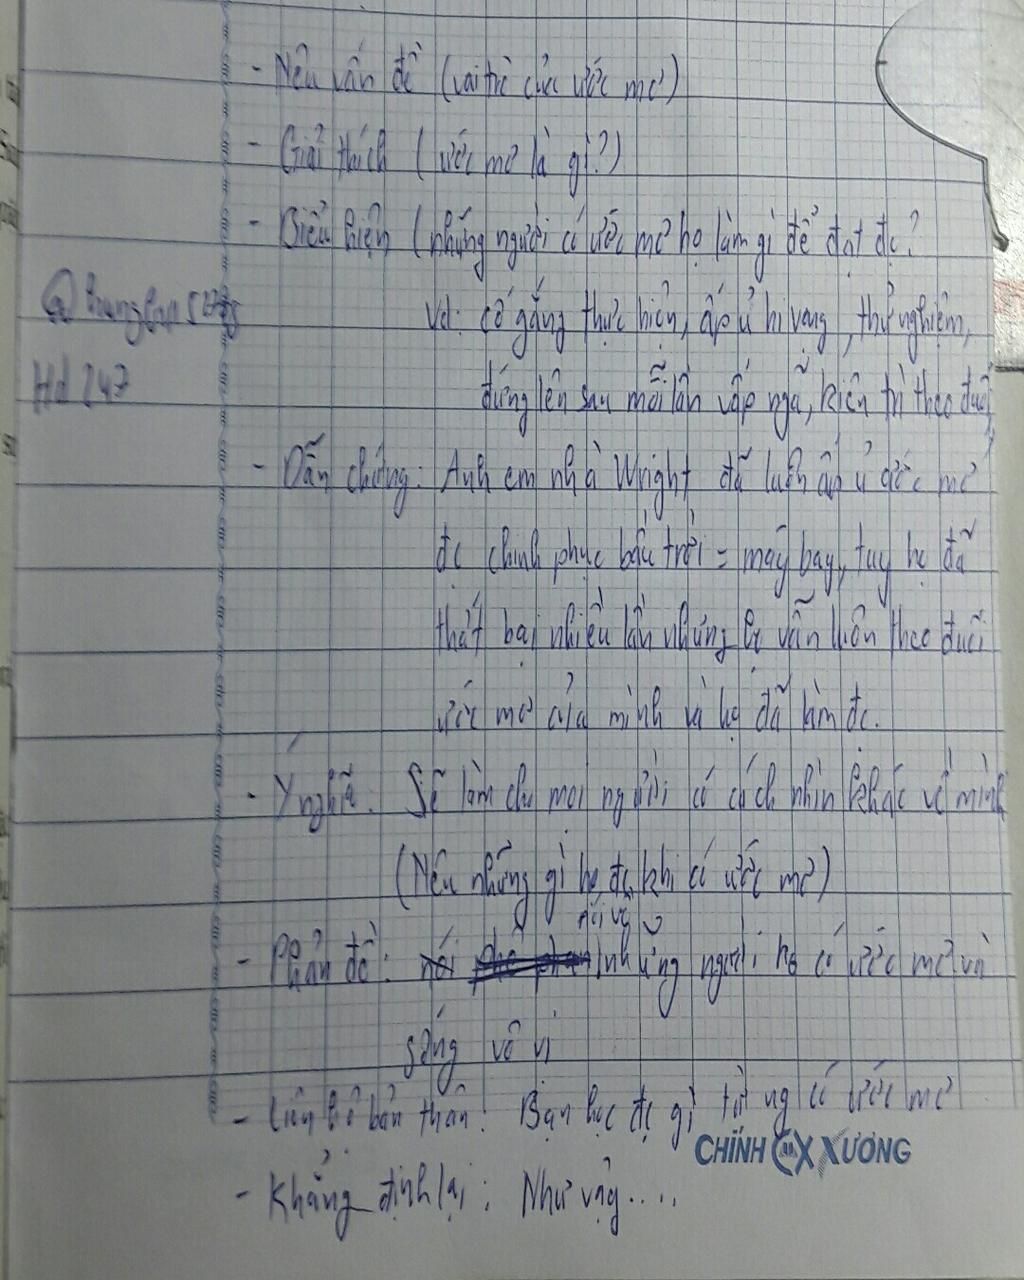 - Nêu vấn đề (vai trò của ước mơ)
- Giải thích (ước mơ là gì?)
- Biểu hiện (những người có ước mơ họ làm gì để đạt đc?
Vd: cố gắng thực hiện, ấp ủ hi vọng, thử nghiệm,
đứng lên sau mỗi lần vấp ngã, kiên trì theo đuổi
- Dẫn chứng: Anh em nhà Wright đã luôn ấp ủ ước mơ
đc chinh phục bầu trời = máy bay, tuy họ đã
thất bại nhiều lần nhưng họ vẫn luôn theo đuổi
ước mơ của mình và họ đã làm đc.
- Ý nghĩa: Sẽ làm cho mọi người có cách nhìn khác về mình
(Nêu những gì họ đc khi có ước mơ)
nói về
- Phản đề: những người ko có ước mơ và
sống vô vị
- Liên hệ bản thân: Bạn học đc gì từ ng có ước mơ
CHÍNH XƯƠNG
- Khẳng định lại: Như vậy....
Hd 247